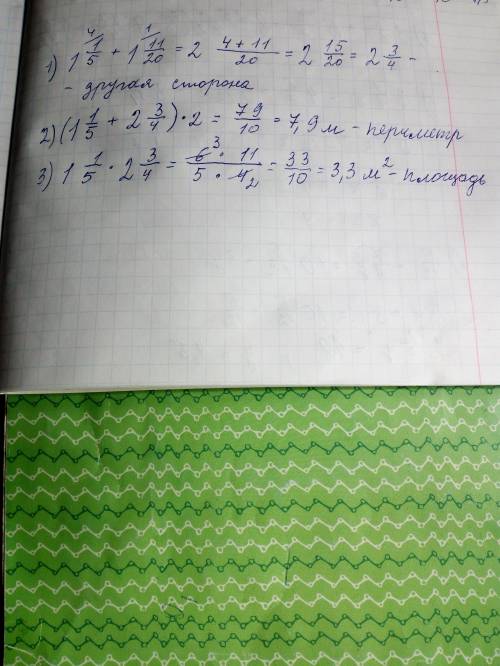 4 1
1) 1 1/5 + 1 11/20 = 2 (4 + 11)/20 = 2 15/20 = 2 3/4 -
- другая сторона
2) (1 1/5 + 2 3/4) · 2 = 79/10 = 7,9 м - периметр
3) 1 1/5 · 2 3/4 = (6 3 · 11)/(5 · 4 2) = 33/10 = 3,3 м² - площадь